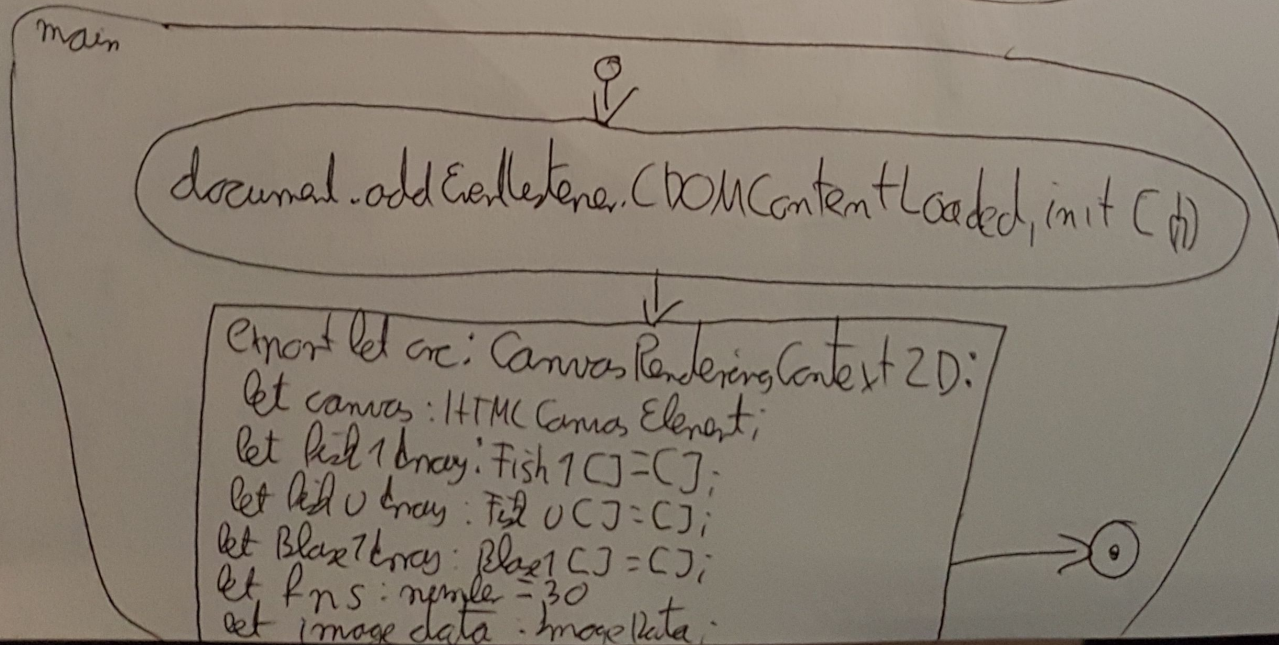 main
document.addEventListener.(DOMContentLoaded, init ( ))
export let crc: CanvasRenderingContext2D:
let canvas: HTMLCanvasElement;
let fish1Array: Fish1[]=[];
let Array: []=[];
let Blase1Array: Blase1[]=[];
let fps: number=30
let imagedata: ImageData;